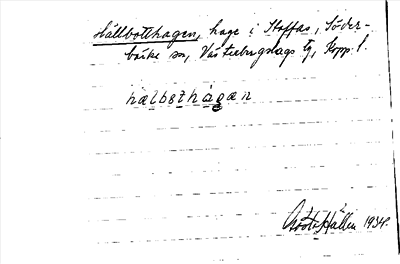 Hällbotthagen, hage i Stoffas, Söder-
bärke sn, Västerbergslags tg, Kopp. l.
hælbɵthagæn
Gösta Hållen 1934.